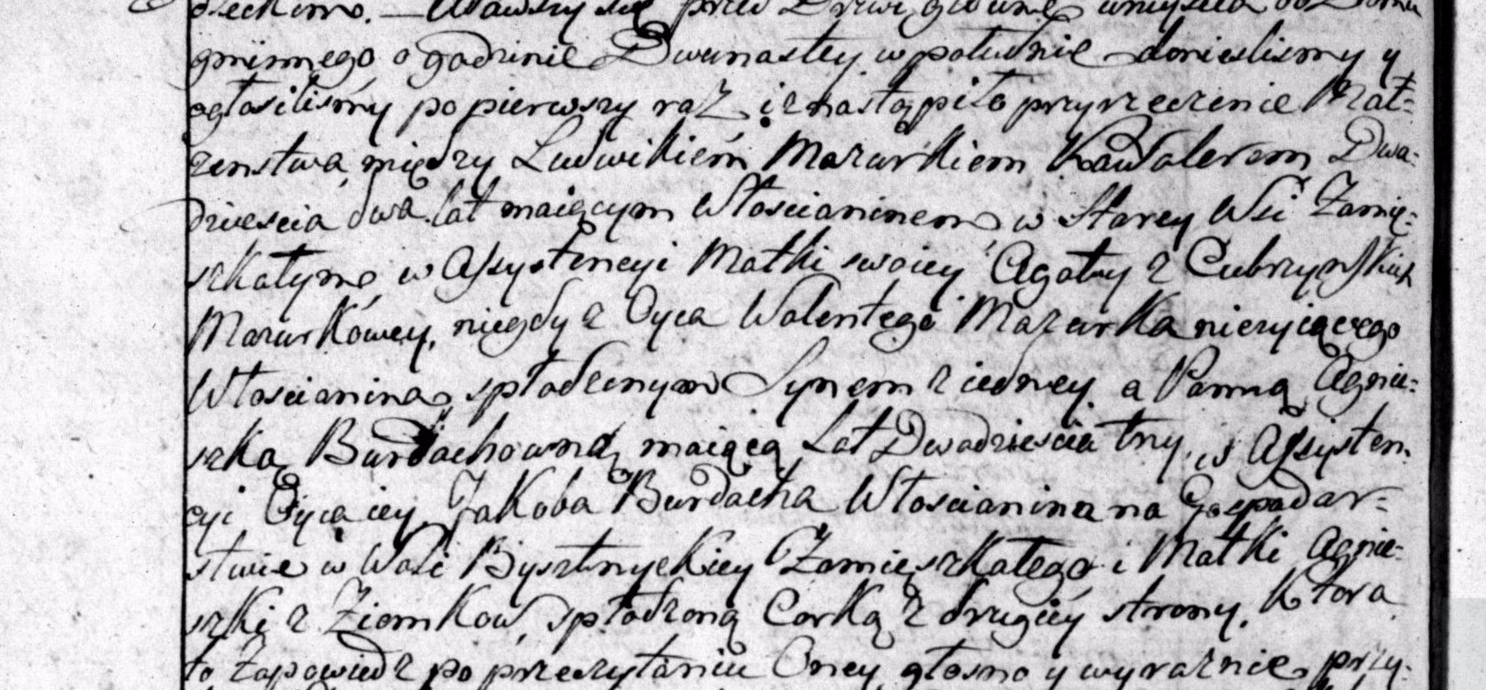 przed Drzwi główne
gminnego o godzinie Dwunastey w południe doniesliśmy y
ogłosiliśmy po pierwszy raz iż nastąpiło przyrzeczenie Mał-
zenstwa między Ludwikiem Mazurkiem Kawalerem Dwa-
dziescia dwa lat maiącym Włoscianinem w Starey Wsi Zamię-
szkałym, w Assystencyi Matki swoiey Agaty z Cubrzynskich
Mazurkowey, niegdy z Oyca Walentego Mazurka nieżyiącego
Włoscianina, spłodzonym Synem z iedney a Panną Agnie-
szką Burdachowną maiącą Lat Dwadziescia trzy, w Assysten-
cyi Oyca iey Jakoba Burdacha Włoscianina na Gospodar-
stwie w Wsi Bysztryckiey Zamięszkałego i Matki Agnie-
szki z Ziomkow, spłodzoną Corką z drugiey strony. Ktora
to Zapowiedz po przeczytaniu Oney głosno y wyraznie, przy-